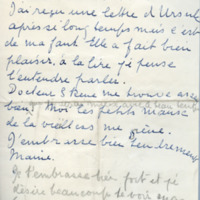 J'ai reçu une lettre d'Ursule
après si long temps mais c'est
de ma faut. Elle a fait bien
plaisir, à la lire je pense
l'entendre parler.
Docteur S René me trouve assez
bien. Moi les petits maux
de la vieilless me gène.
J'embrasse bien tendrement
Mamie.
Je t'embrasse bien fort et je
désire beaucoup te voir